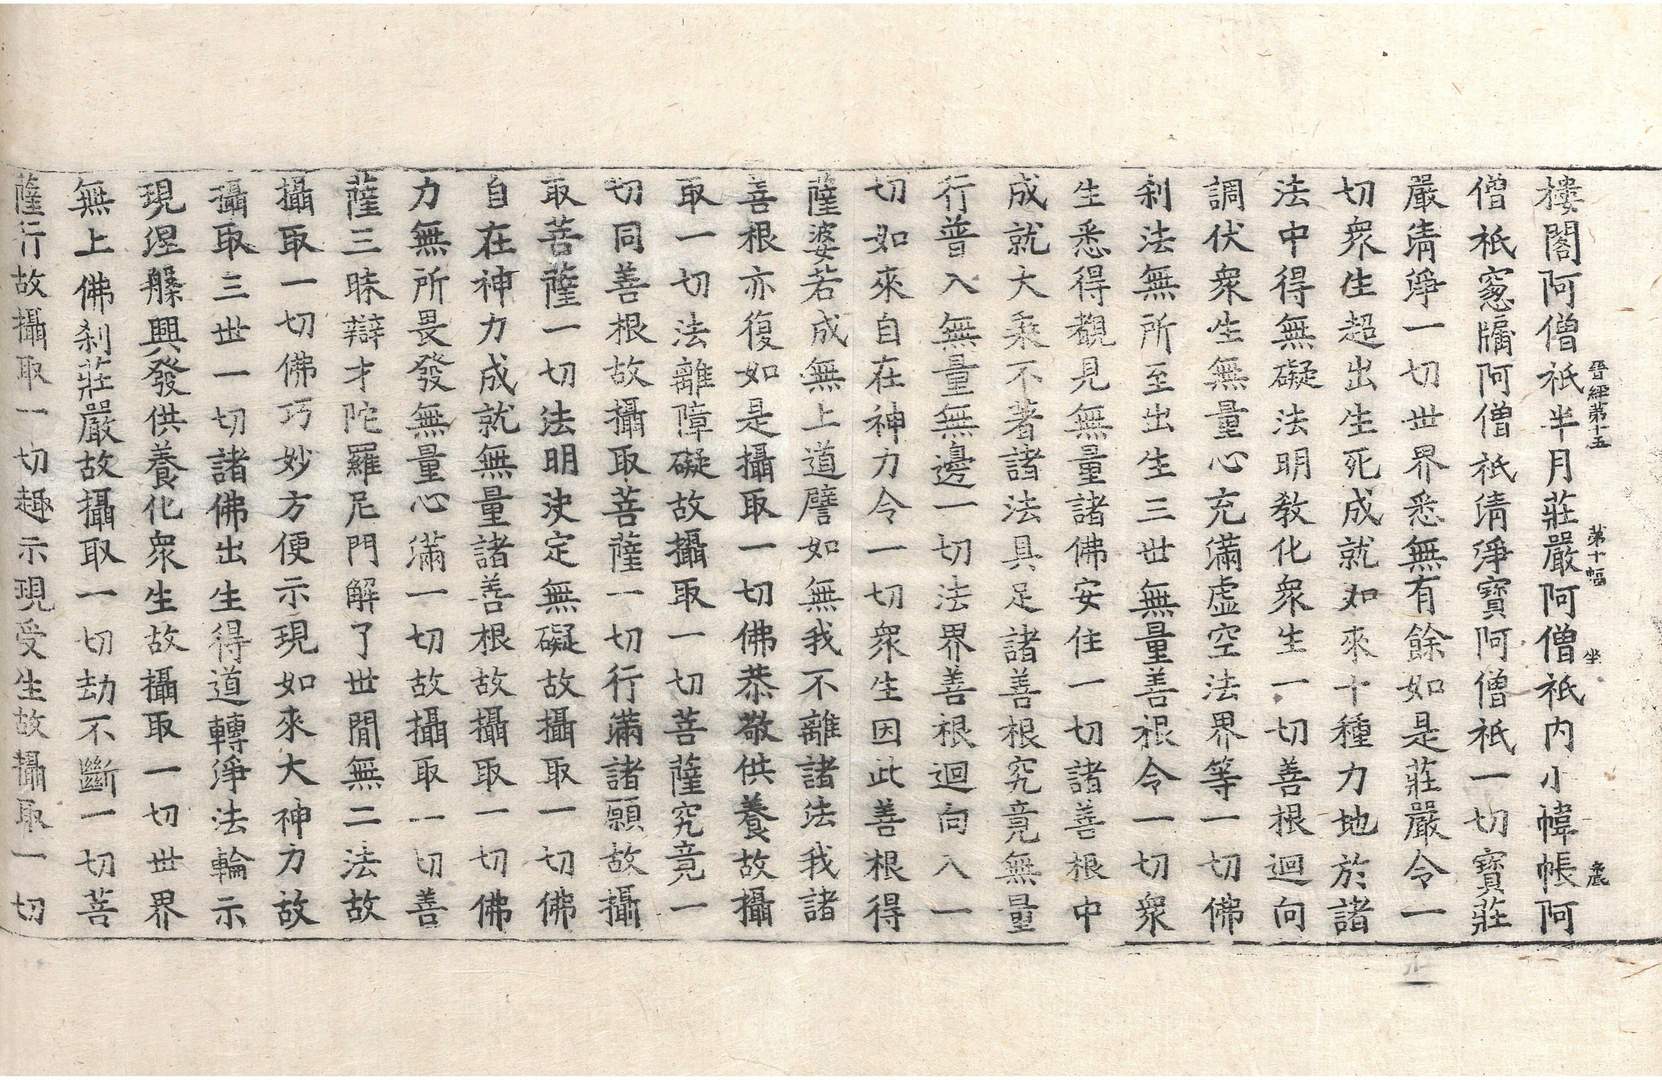 晉經第十五　第十幅　坐　𪋻
樓閣阿僧祇半月莊嚴阿僧祇內小幃帳阿
僧祇窓牖阿僧祇清淨寶阿僧祇一切寶莊
嚴清淨一切世界悉無有餘如是莊嚴令一
切眾生超出生死成就如來十種力地於諸
法中得無礙法明教化眾生一切善根迴向
調伏眾生無量心充滿虛空法界等一切佛
刹法無所至出生三世無量善根令一切眾
生悉得覩見無量諸佛安住一切諸善根中
成就大乘不著諸法具足諸善根究竟無量
行普入無量無邊一切法界善根迴向入一
切如來自在神力令一切眾生因此善根得
薩婆若成無上道譬如無我不離諸法我諸
善根亦復如是攝取一切佛恭敬供養故攝
取一切法離障礙故攝取一切菩薩究竟一
切同善根故攝取菩薩一切行滿諸願故攝
取菩薩一切法明決定無礙故攝取一切佛
自在神力成就無量諸善根故攝取一切佛
力無所畏發無量心滿一切故攝取一切善
薩三昧辯才陀羅尼門解了世間無二法故
攝取一切佛巧妙方便示現如來大神力故
攝取三世一切諸佛出生得道轉淨法輪示
現涅槃興發供養化眾生故攝取一切世界
無上佛刹莊嚴故攝取一切劫不斷一切菩
薩行故攝取一切趣示現受生故攝取一切